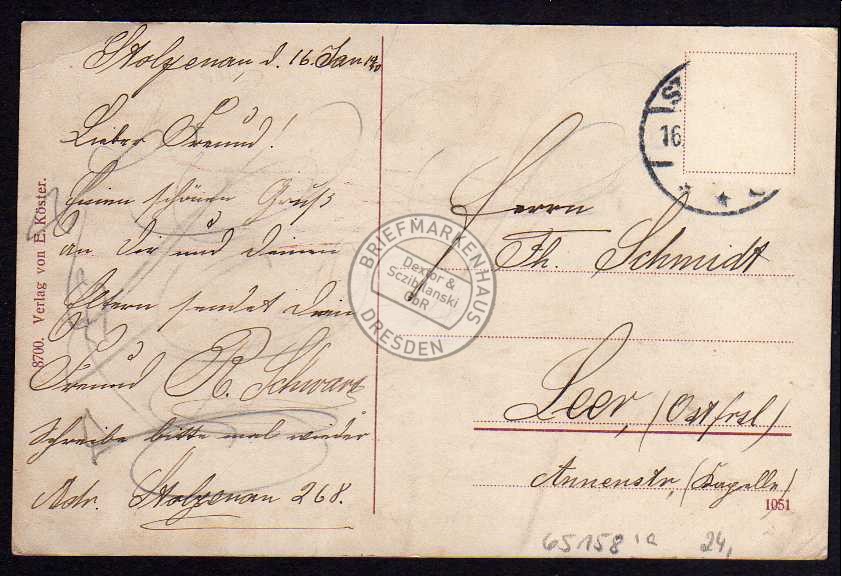 Stolzenau, d. 16. Jan.
Lieber Freund!
Einen schönen Gruß
an Dir und deinen
Eltern sendet dein
Freund R. Schwarz
Schreibe bitte mal wieder
Adr. Stolzenau 268.
8700. Verlag von E. Köster.
16
Herrn
Th. Schmidt
Leer, (Ostfrsl)
Annenstr, (Kapelle)
1051
65158 1a 24,
BRIEFMARKENHAUS
Dexlor &
Sczibilanski
GbR
DRESDEN